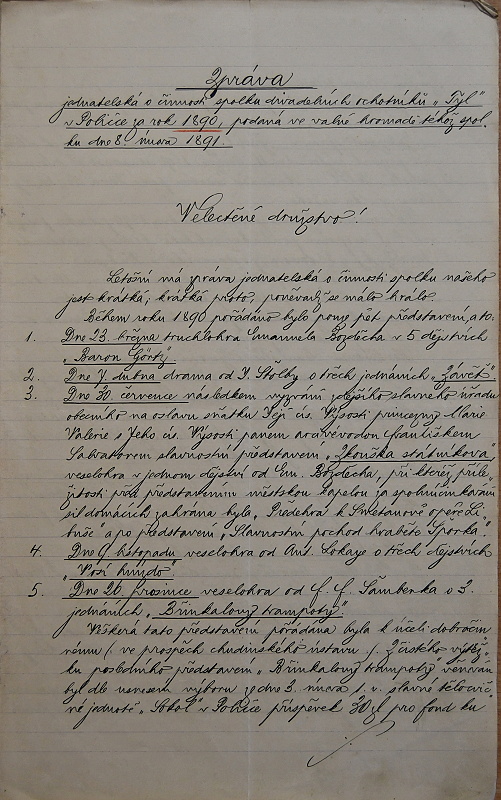 Zpráva
jednatelská o činnosti spolku divadelních ochotníků „Tyl"
v Poličce za rok 1890, podaná ve valné hromadě téhož spol-
ku dne 8. února 1891.
Velectěné družstvo!
Letošní má zpráva jednatelská o činnosti spolku našeho
jest krátká; krátká proto, poněvadž se málo hrálo.
Během roku 1890 pořádáno bylo pouze pět představení, a to:
1. Dne 23. března truchlohra Emanuela Bozděcha v 5 dějstvích
„Baron Görtz."
2. Dne 7. dubna drama od J. Štolby o třech jednáních „Závěť"
3. Dne 30. července následkem vyzvání zdejšího slavného úřadu
obecního na oslavu sňatku Její cís. Výsosti princezny Marie
Valerie s Jeho cís. Výsostí panem arcivévodou Františkem
Salvatorem slavnostní představení „Zkouška státníkova",
veselohra v jednom dějství od Em. Bozděcha, při kteréž příle-
žitosti před představením městskou kapelou za spoluúčinkování
sil domácích zahrána byla „Předehra k Smetanově opeře Li-
buše" a po představení „Slavnostní pochod hraběte Šporka."
4. Dne 9. listopadu veselohra od Ant. Lokaye o třech dějstvích
„Prsí knížo."
5. Dne 26. prosince veselohra od F. F. Šamberka o 3.
jednáních „Břinkalovy trampoty."
Veškerá tato představení pořádána byla k účeli dobročin-
nému /: ve prospěch chudinského ústavu :/. Z čistého výtěž-
ku posledního představení „Břinkalovy trampoty" věnován
byl dle usnesení výboru ze dne 3. února l. r. slavné tělocvič-
né jednotě „Sokol" v Poličce příspěvek 30 zl pro fond ku